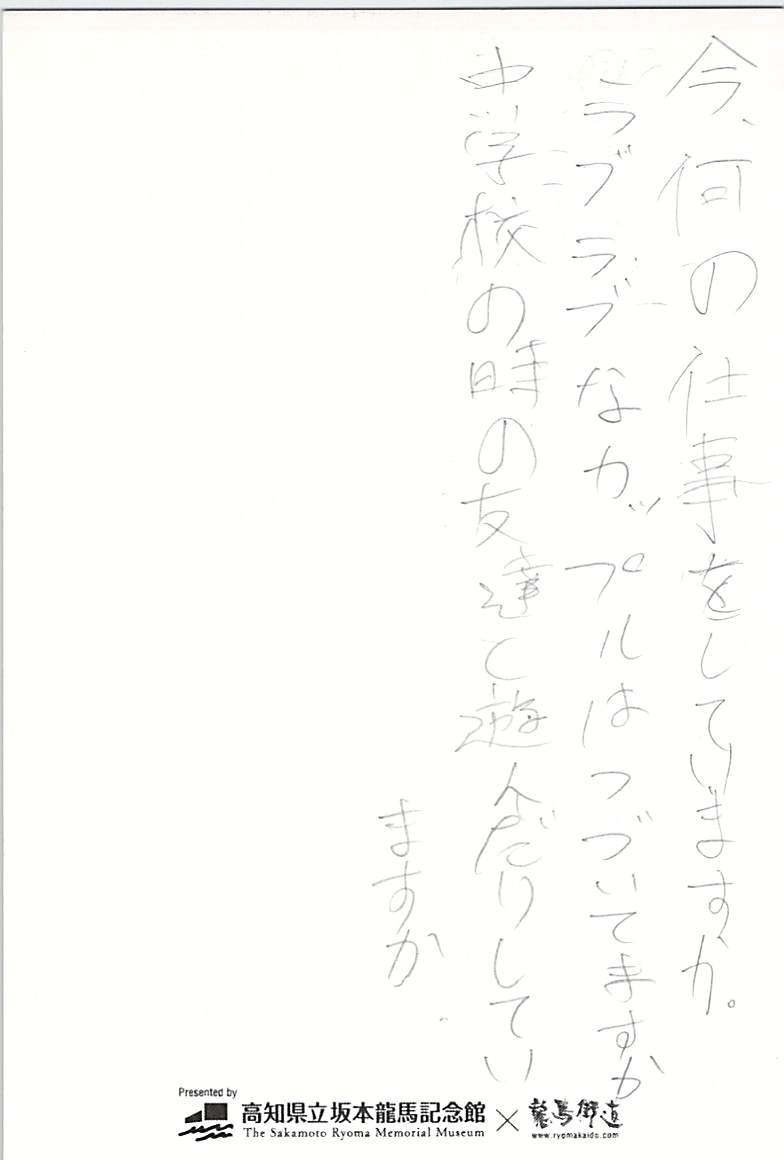 今、何の仕事をしていますか。
ラブラブなカップルはつづいてますか
中学校の時の友達と遊んだりしてい
ますか.
Presented by
高知県立坂本龍馬記念館
The Sakamoto Ryoma Memorial Museum
×
龍馬街道
www.ryomakaido.com